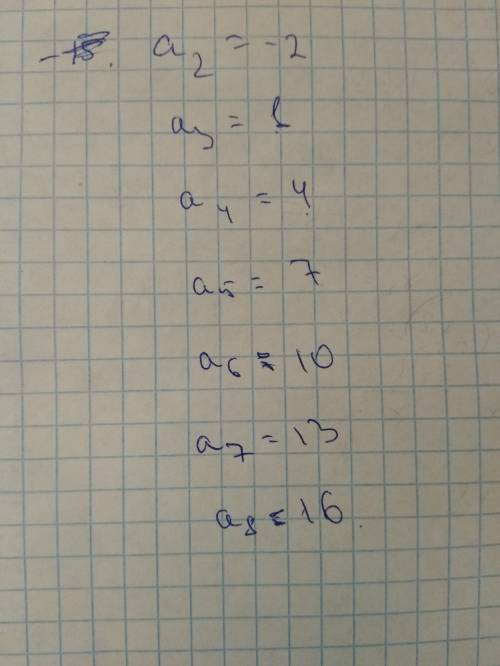 a₂ = -2
a₃ = 1
a₄ = 4
a₅ = 7
a₆ = 10
a₇ = 13
a₈ = 16.